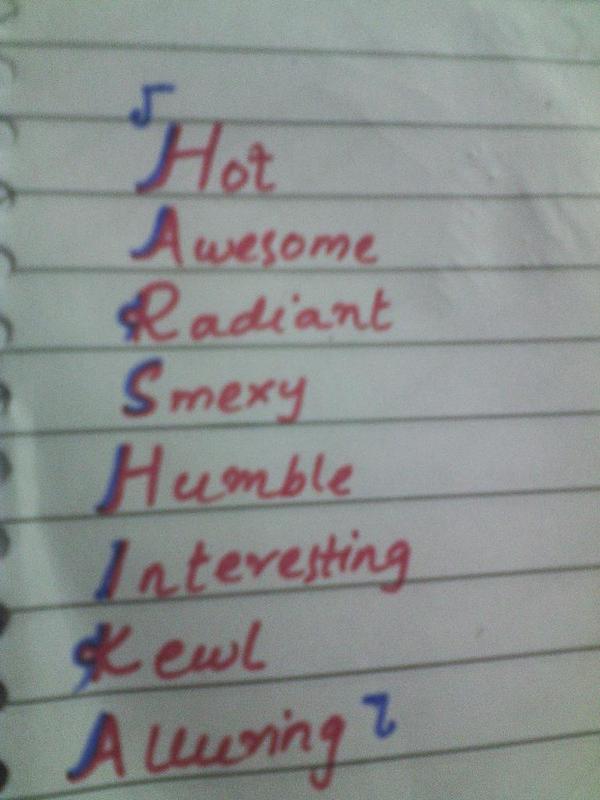 Hot
Awesome
Radiant
Smexy
Humble
Interesting
Kewl
Alluring